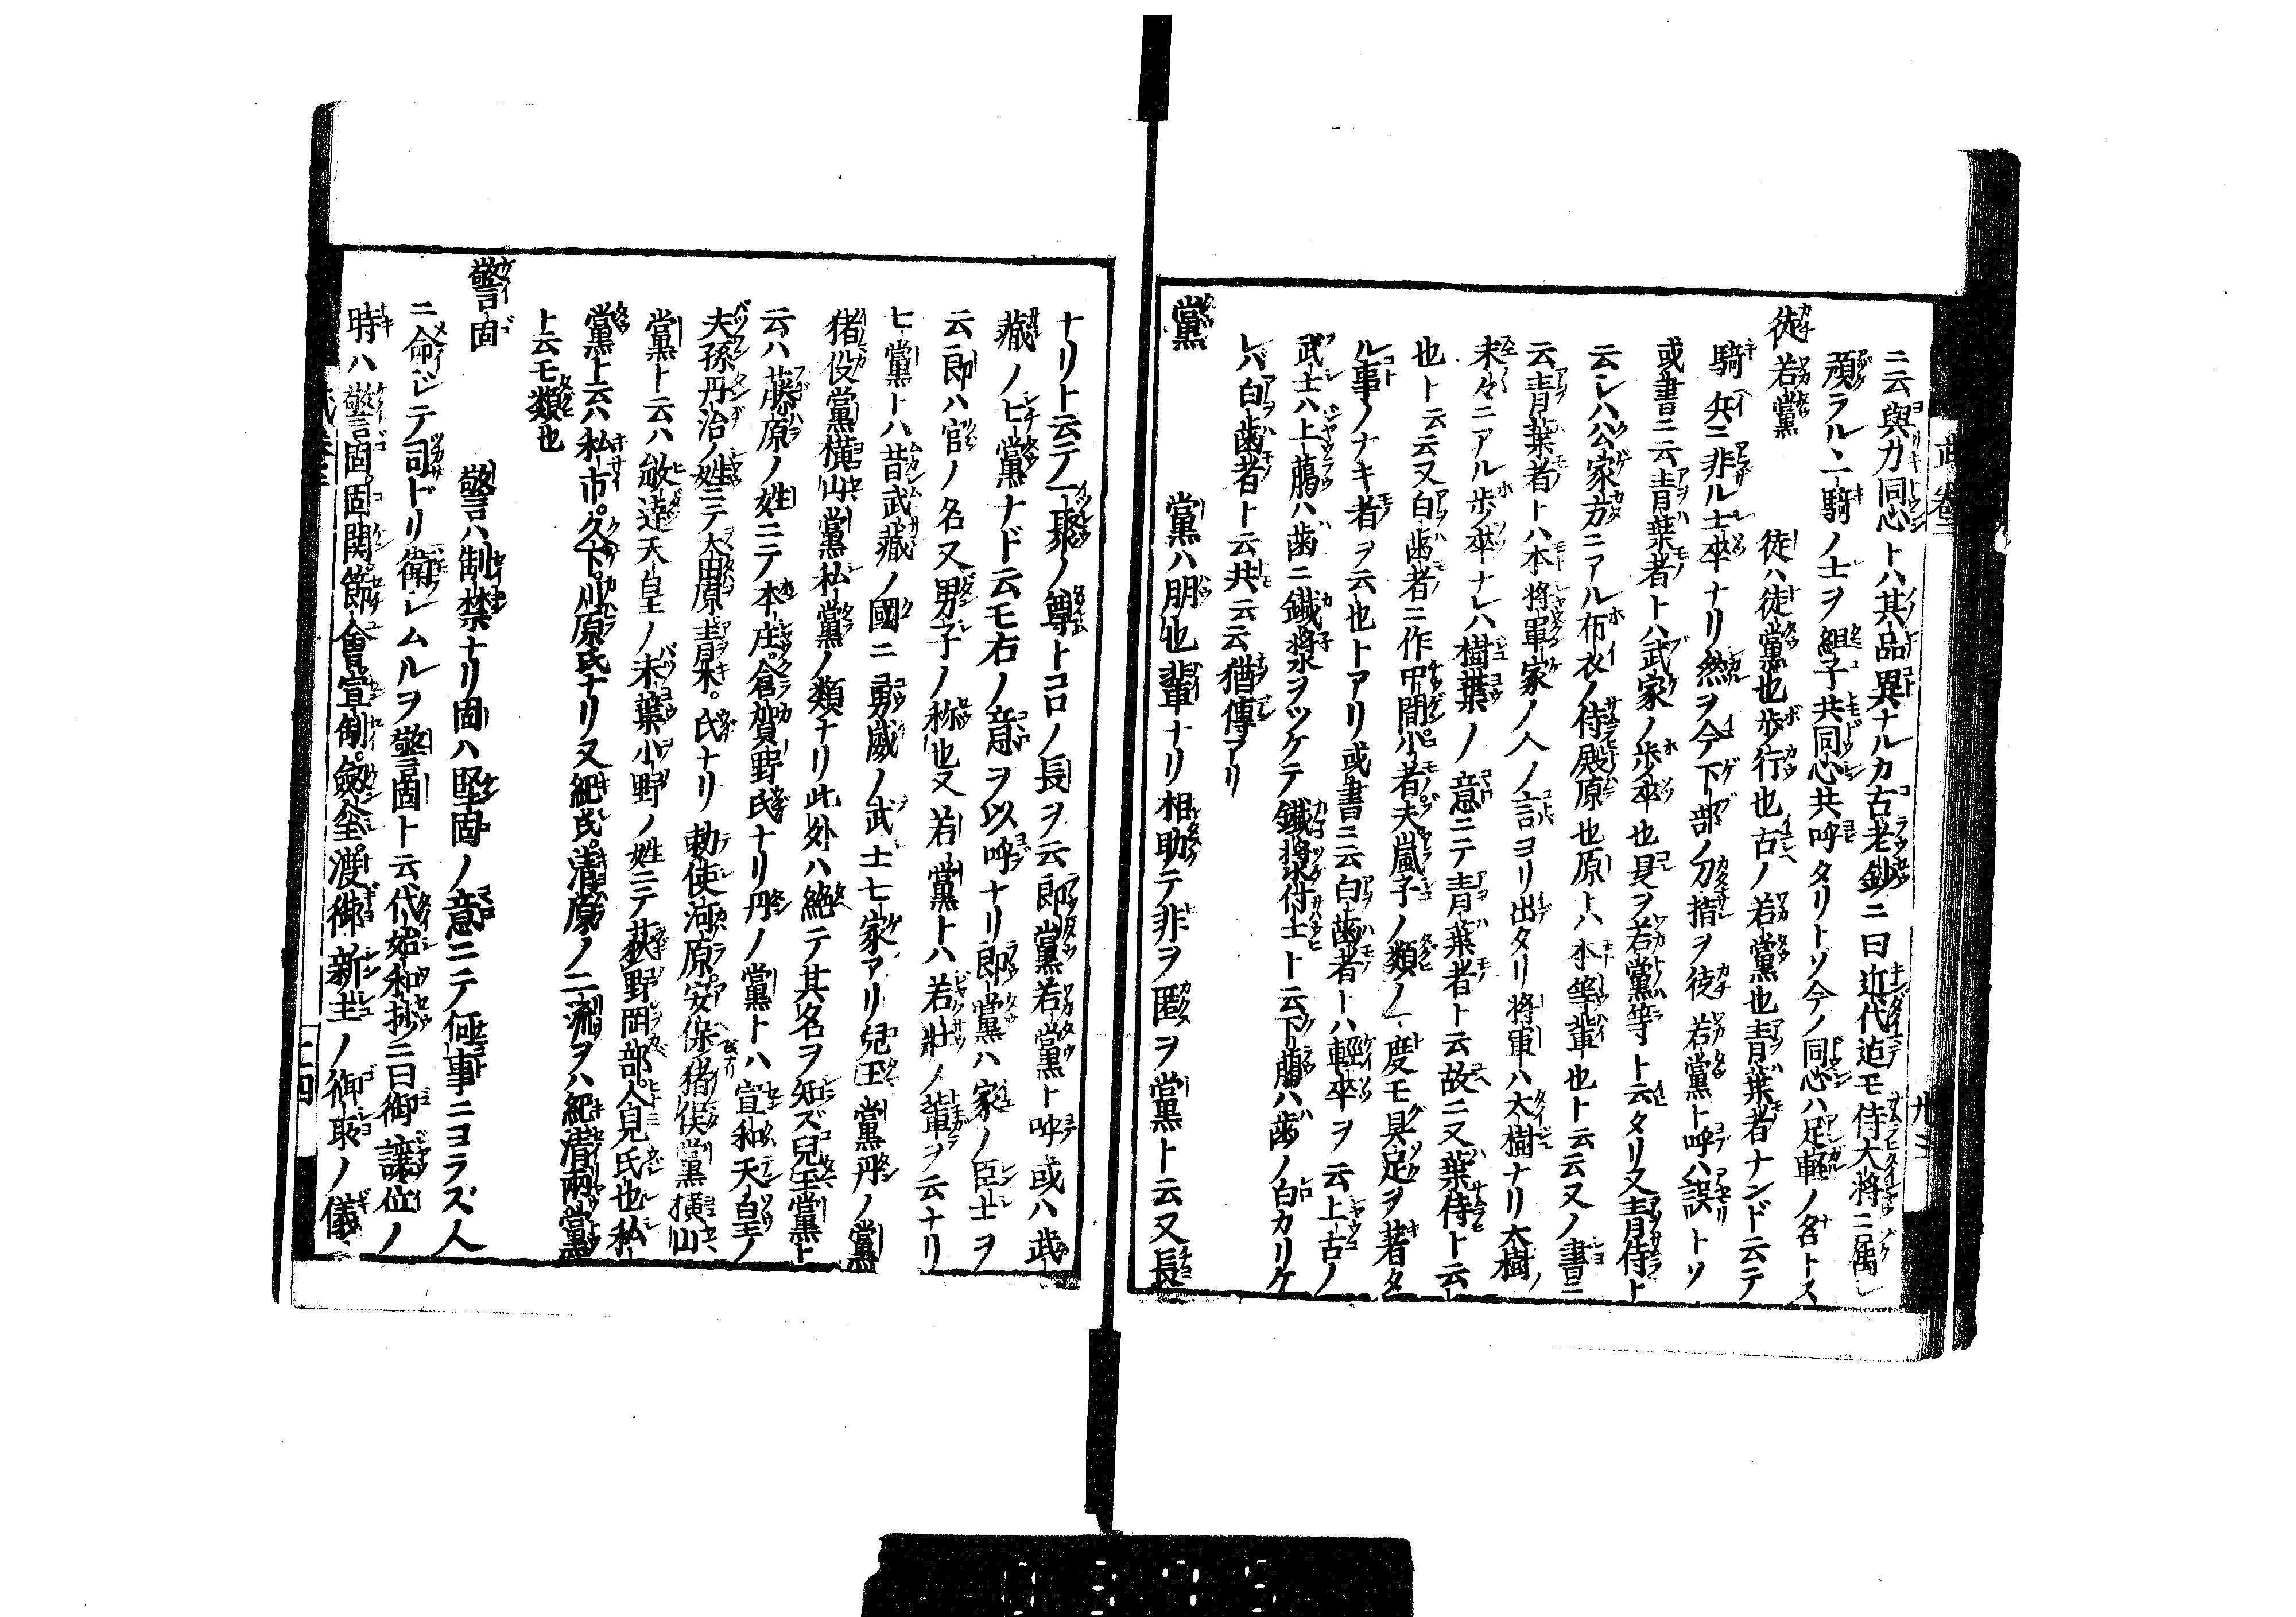 ニ云與力同心トハ其品異ナルカ古老鈔ニ曰近代迠モ侍大將ニ屬シ
頒ラル二騎ノ士ヲ組子共同心共呼タリトソ今ノ同心ハ足軽ノ名トス
徒若黨 徒ハ徒黨也歩行也古ノ若黨也青葉者ナンド云テ
騎兵ニ非ル士卒ナリ然ヲ今下部ノ刀指ヲ徒若黨ト呼ハ誤トソ
或書ニ云青葉者トハ武家ノ歩卒也是ヲ若黨等ト云タリ又青侍ト
云シハ公家方ニアル布衣ノ侍殿原也原トハ本等輩也ト云云又ノ書ニ
云青葉者トハ本將軍家ノ人ノ言ヨリ出タリ將軍ハ大樹ナリ大樹ノ
末々ニアル歩卒ナレハ樹葉ノ意ニテ青葉者ト云故ニ又葉侍ト云
也ト云云又白歯者ニ作中間小者夫嵐子ノ類ノ一度モ具足ヲ著タ
ル事ノナキ者ヲ云也トアリ或書ニ云白歯者トハ輕卒ヲ云上古ノ
武士ハ上﨟ハ歯ニ鐵漿ヲツケテ鐵漿付士ト云下﨟ハ歯ノ白カリケ
レハ白歯者ト云共云云猶傳アリ
黨 黨ハ朋也輩ナリ相助テ非ヲ匿ヲ黨ト云又長
ナリト云テ一聚ノ尊トコロノ長ヲ云郎黨若黨ト呼或ハ武
藏ノ七黨ナド云モ右ノ意ヲ以呼ナリ郎黨ハ家ノ臣士ヲ
云郎ハ官ノ名又男子ノ称也又若黨トハ若壯ノ輩ヲ云ナリ
七黨トハ昔武藏ノ國ニ勇威ノ武士七家アリ兒玉黨丹ノ黨
猪俣黨横山黨私黨ノ類ナリ此外ハ絶テ其名ヲ知ズ兒玉黨ト
云ハ藤原ノ姓ニテ本庄倉賀野氏ナリ丹ノ黨トハ宣和天皇ノ
夫孫丹治ノ姓ニテ大田原青木氏ナリ勅使河原安保猪俣黨横山
黨ト云ハ敏達天皇ノ末葉小野ノ姓ニテ荻野岡部人見氏也私
黨ト云ハ私市久下川原氏ナリ又紀氏清原ノ二流ヲハ紀清兩黨
ト云モ類也
警固 警ハ制禁ナリ固ハ堅固ノ意ニテ何事ニヨラズ人
ニ命ジテ司ドリ衛レムルヲ警固ト云代始和抄ニ曰御譲位ノ
時ハ警固固関節會宣制劔璽渡御新主ノ御取ノ儀